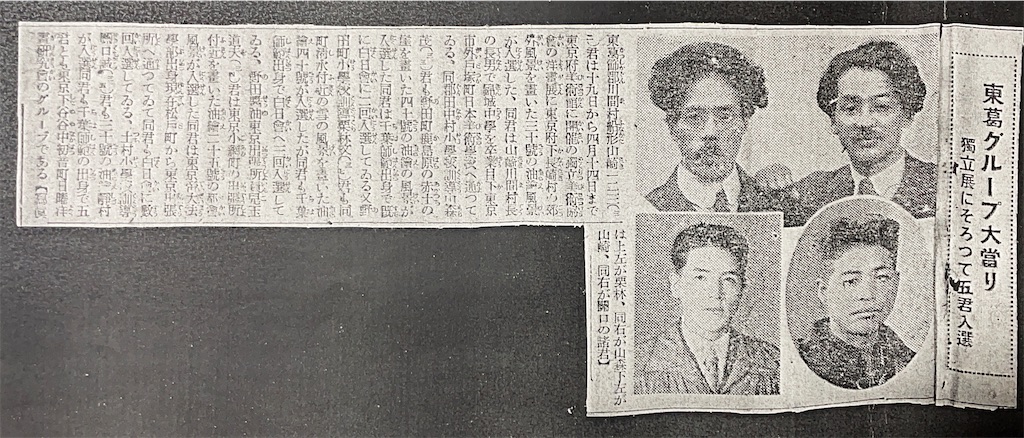 東葛グループ大當り
獨立展にそろつて五君入選
東葛飾郡川間村船形山崎一二三(
)君は十九日から四月十四日まで
東京府美術館に開催の獨立美術協
會の洋畫展に東京府下長崎村の郊
外風景を畫いた三十號の油「風景」
が入選した、同君は山崎川間村長
の長男で 城中學を卒業目下東京
市外戸塚町日本美術學校へ通つて
ゐる、同郡田中村小學校訓導山森
茂( )君も野田町 原の赤土の
崖を畫いた四十號の油繪の風景が
入選した同君は千葉師範出身で既
に白日會に二回入選してゐる又野
田町小學校訓導栗林 ( )君も同
町清水付近の雪の風景を畫いた油
繪四十號が入選したが同君も千葉
師範出身で白日會へ二回入選して
ゐる、野田醤油東京出張所員兒玉
道夫( )君は東京小網町の出張所
付近を畫いた油繪二十五號の都會
風景が入選した同君は東京商大
學部出身現在松戸町から東京出張
所へ通つてゐて同君も白日會に數
回入選してゐる、土村小學校訓導
關口 ( )君も二十號の油「 村」
が入選同君も千葉師範の出身で五
君とも東京下谷谷中初音町日曜洋
畫研究會のグループである【寫眞
は上左が栗林、同右が山森下左が
山崎、同右が關口の諸君】